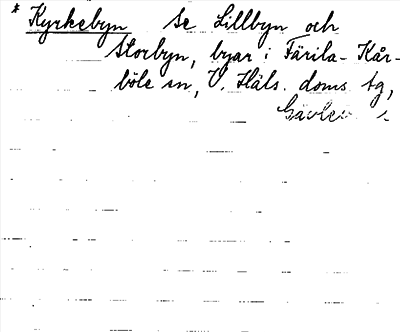 * Kyrkebyn se Lillbyn och
Storbyn, byar i Färila-Kår-
böle sn, V. Häls. doms. tg,
Gävleb